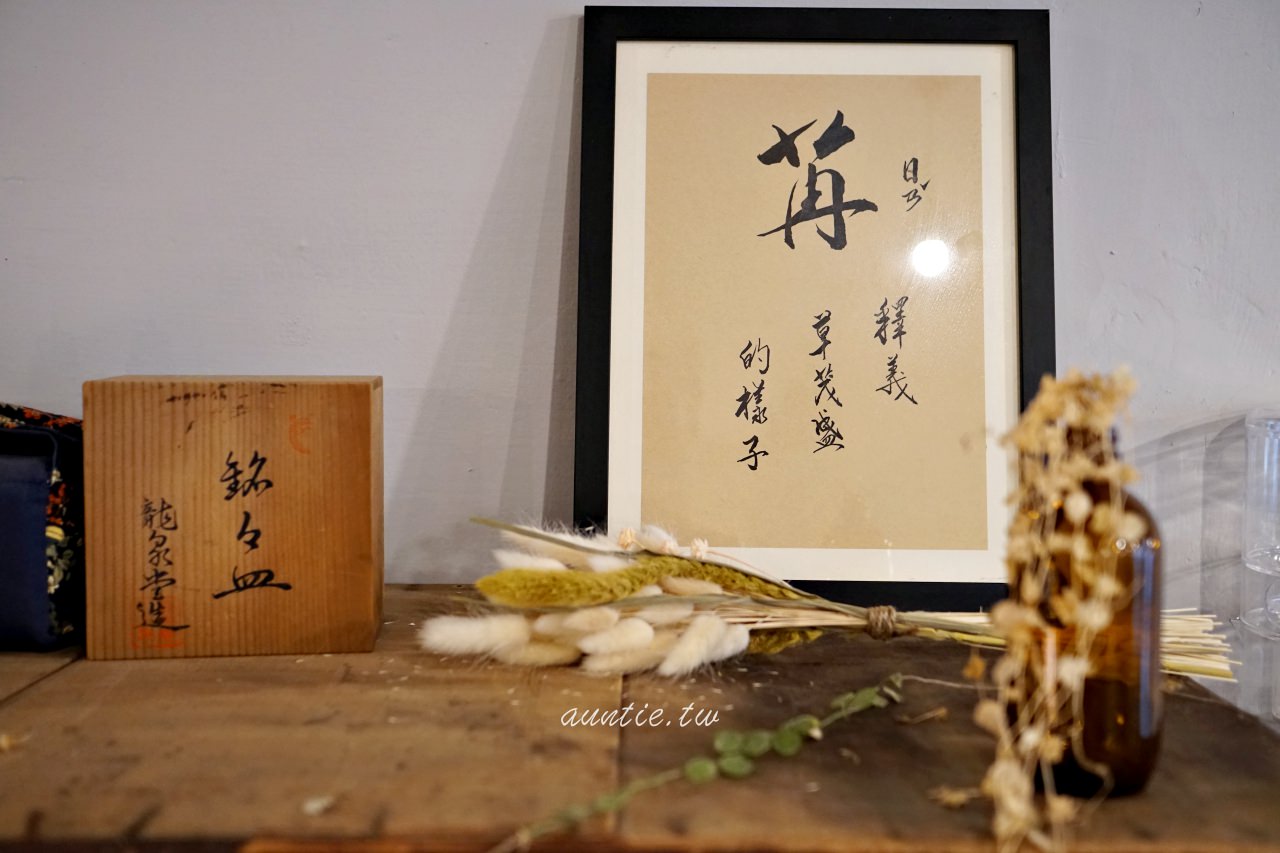 苒 ㄖㄢˇ
釋義
草茂盛
的樣子
銘々皿
龍泉堂造
auntie.tw